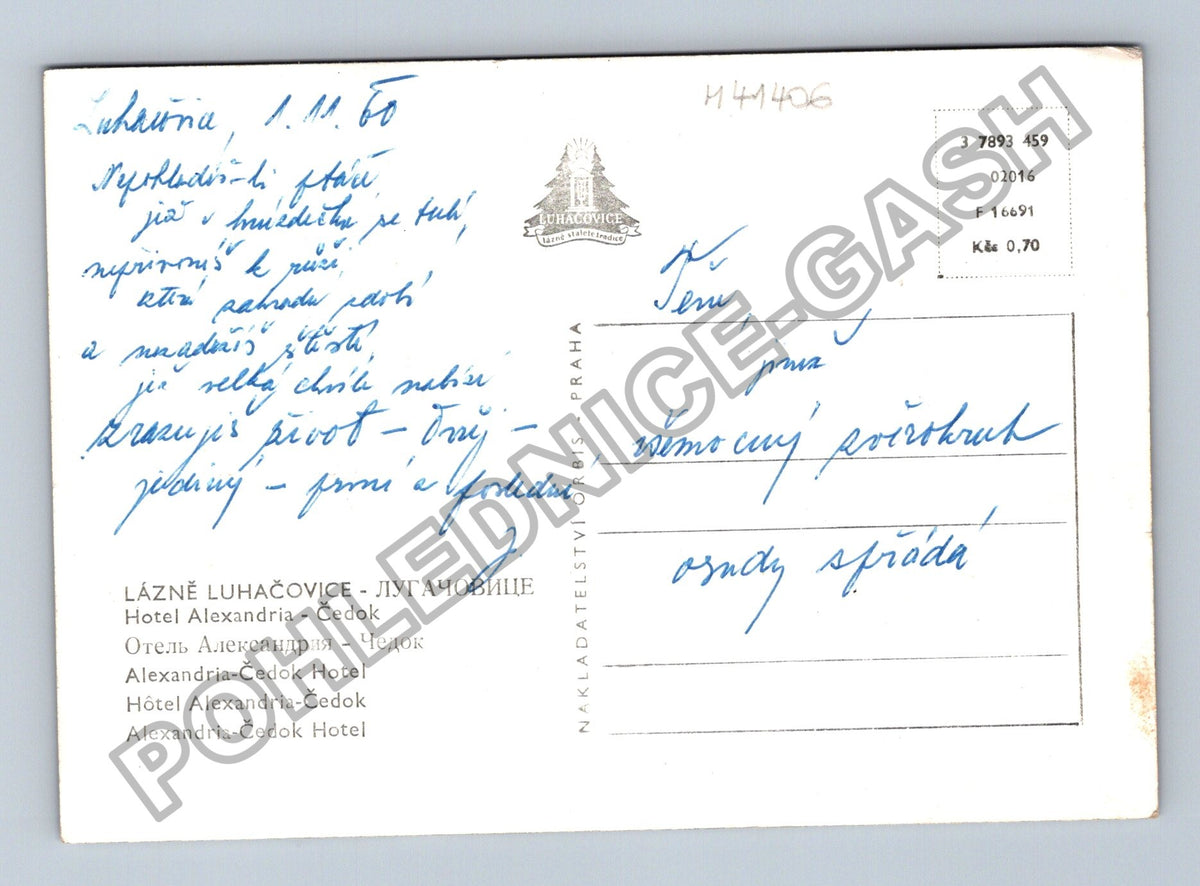 Luhačovice, 1.11.60
Nepohladíš-li ptáče,
jež v hnízdečku se tulí,
nepřivoníš k růži,
která zahradu zdobí
a nezadržíš štěstí,
jež velká chvíle nabízí
zrazuješ život – Tvůj –
jediný – první a poslední
M 41406
LUHAČOVICE
lázně staleté tradice
3 7893 459
02016
F 16691
Kčs 0,70
Těm,
jimž
všemocný zvěrokruh
osudy spřádá
NAKLADATELSTVÍ ORBIS - PRAHA
LÁZNĚ LUHAČOVICE - ЛУГАЧОВИЦЕ
Hotel Alexandria - Čedok
Отель Александрия - Чедок
Alexandria-Čedok Hotel
Hôtel Alexandria-Čedok
Alexandria-Čedok Hotel
POHLEDNICE-GASH